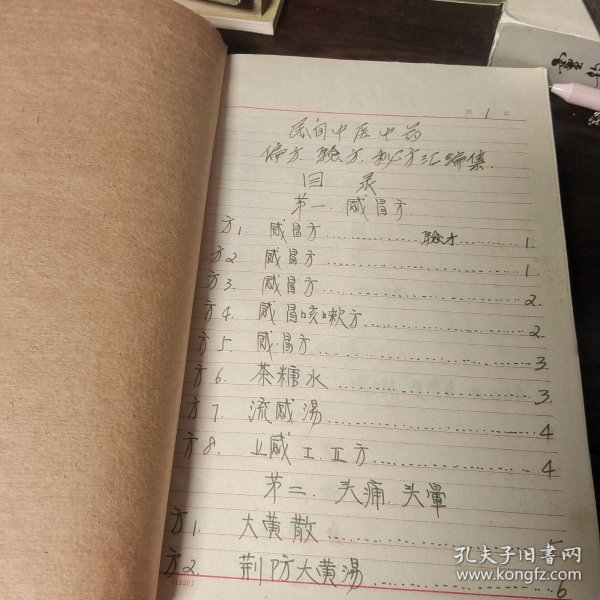 第 1 页
民间中医中药
偏方、验方、秘方汇编集.
目录
第一. 感冒方
方1 感冒方 验方 1.
方2 感冒方 1.
方3. 感冒方 2
方4. 感冒咳嗽方 2.
方5. 感冒方 3.
方6. 茶糖水 3.
方7. 流感汤 4
方8. 止感工五方 4
第二. 头痛 头晕
方1. 大黄散 5
方2. 荆防大黄湯 6
(1326)
孔夫子旧书网
www.kongfz.com